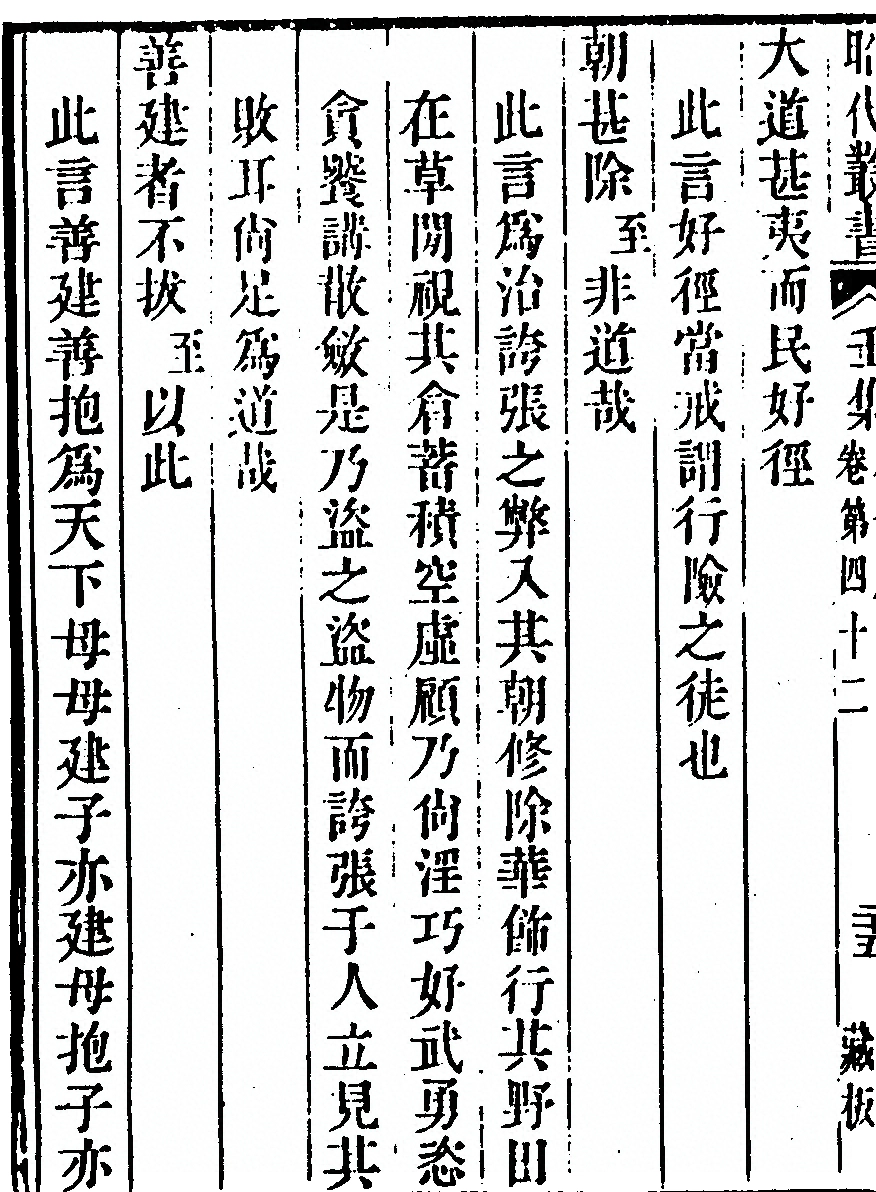 昭代叢書 壬集卷第四十二 藏板
大道甚夷而民好徑
此言好徑當戒謂行險之徒也
朝甚除至非道哉
此言爲治誇張之弊入其朝修除華飾行其野田
在草閒視其倉蓄積空虛顧乃尙淫巧好武勇恣
貪饕講散斂是乃盜之盜物而誇張于人立見其
敗耳尙足爲道哉
善建者不拔至以此
此言善建善抱爲天下母母建子亦建母抱子亦